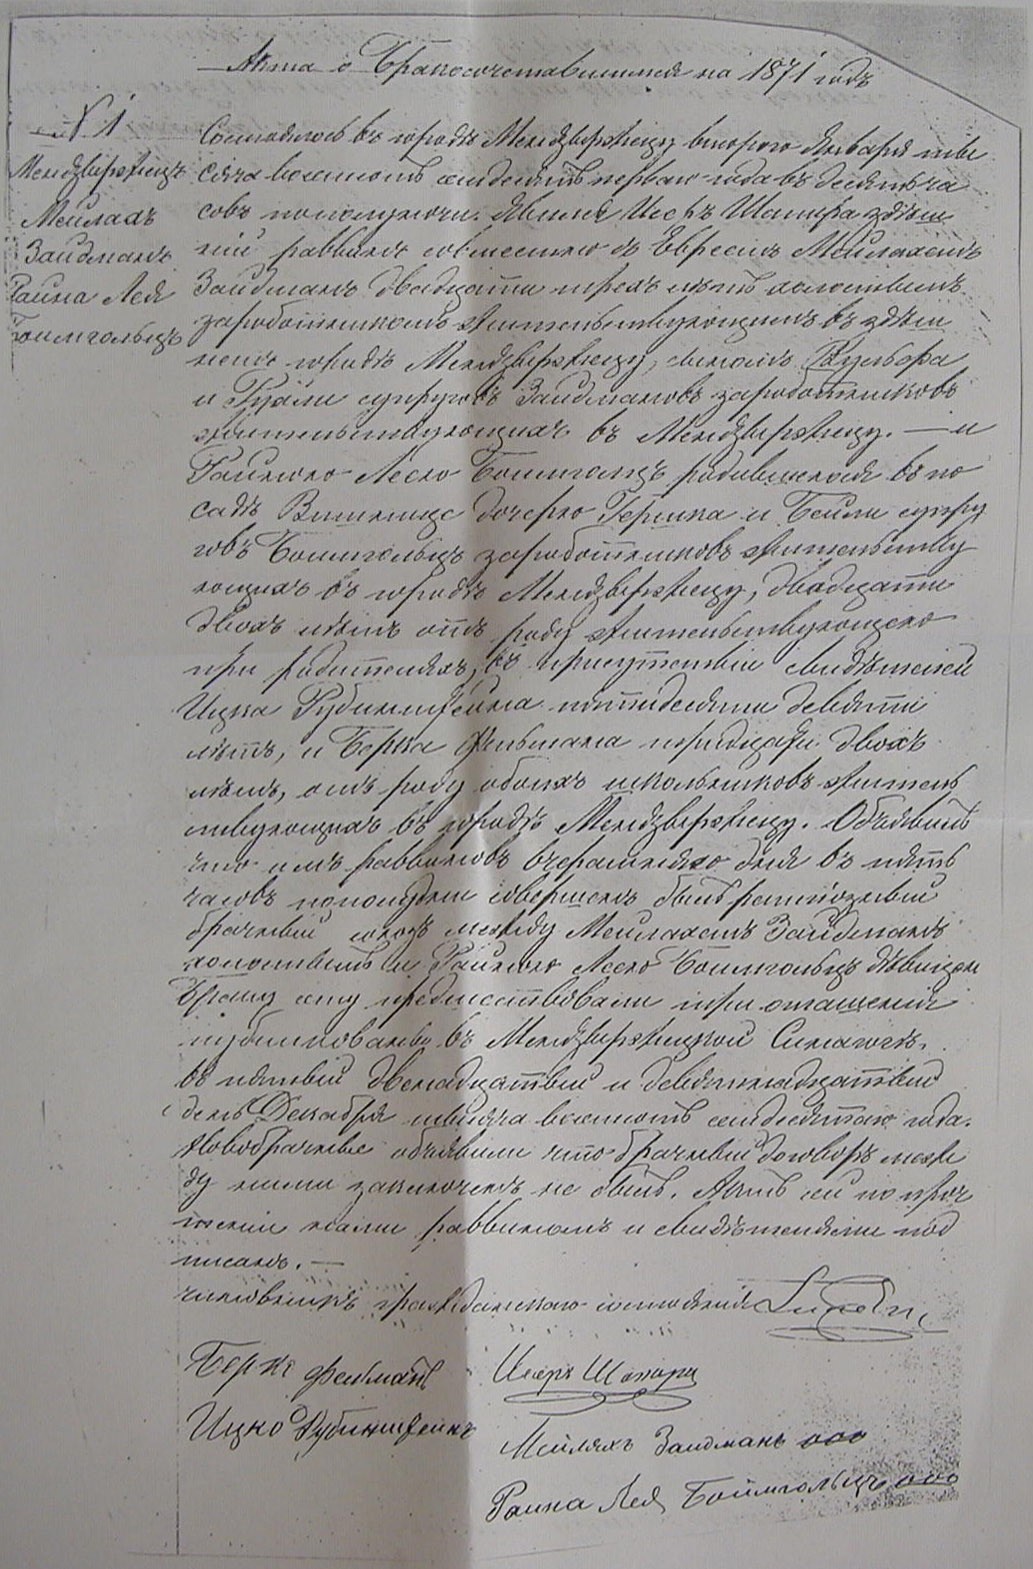 Акта о Бракосочетавшимся на 1871 годъ
№ 1
Мендзвержецъ
Мейлахъ
Зайдманъ
Раина Лея
Боимгольцъ
Состоялось въ городѣ Мендзвержецу втораго Января тыся
сяча восемсотъ семдесятъ перваго года въ десять ча
совъ пополуночи. Явился Иосъ Шапира здѣш
ній раввинъ совместно съ Евреемъ Мейлахомъ
Зайдманъ двадцати трехъ лѣтъ холостымъ
заработникомъ жительствующимъ въ здѣш
немъ городѣ Мендзвержецу, сыномъ Вульфа
и Гудли супруговъ Зайдмановъ заработниковъ
жительствующихъ въ Мендзвержецу. — и
Раиною Леею Боимгольцъ родившеюся въ по
садѣ Вишнице дочерю Гершка и Бейли супру
говъ Боимгольцъ заработниковъ жительству
ющихъ въ городѣ Мендзвержецу, двадцати
двохъ лѣтъ отъ роду жительствующею
при родителяхъ; въ присутствіи свидѣтелей
Ицка Рубинштейна пятидесяти девяти
лѣтъ, и Берка Фельмана тридцати двохъ
лѣтъ, отъ роду обоихъ школьниковъ житель
ствующихъ въ городѣ Мендзвержецу. Объявилъ
что имъ раввиномъ вчерашняго дня въ пять
часовъ пополудни совершенъ былъ религіозный
брачный союзъ между Мейлахомъ Зайдманъ
холостымъ и Раиною Леею Боимгольцъ дѣвицею
Браку сему предшествовали три оглашенія
публикованы въ Мендзвержецкой Синагогѣ,
въ пятый двенадцатый и девятнадцатый
день Декабря тысяча восемсотъ семдесятаго года.
Новобрачные объявили что брачный договоръ меж
ду ними заключенъ не былъ. Актъ сей по проч
тенію нами раввиномъ и свидѣтелями под
писанъ. —
чиновникъ гражданскаго состоянія
Берко Фельманъ
Ицко Рубинштейнъ
Шапира
Мейляхъ Зайдманъ ооо
Раина Лея Боймгольцъ ооо